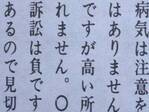 病気は注意を
はありません
ですが高い所
れません。〇
訴訟は負です
あるので見切